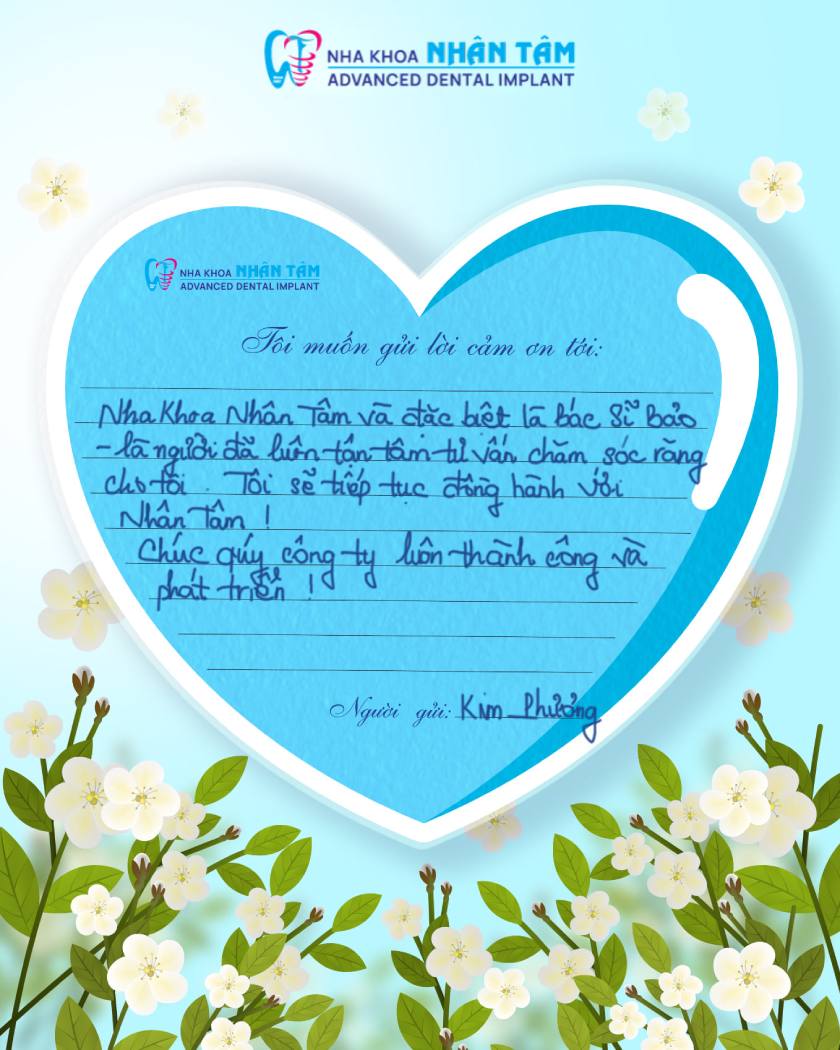 NHA KHOA NHÂN TÂM
ADVANCED DENTAL IMPLANT
NHA KHOA NHÂN TÂM
ADVANCED DENTAL IMPLANT
Tôi muốn gửi lời cảm ơn tới:
Nha Khoa Nhân Tâm và đặc biệt là bác Sĩ Bảo
- là người đã luôn tận tâm tư vấn chăm sóc răng
cho tôi. Tôi sẽ tiếp tục đồng hành với
Nhân Tâm !
Chúc quý công ty luôn thành công và
phát triển !
Người gửi: Kim Phương